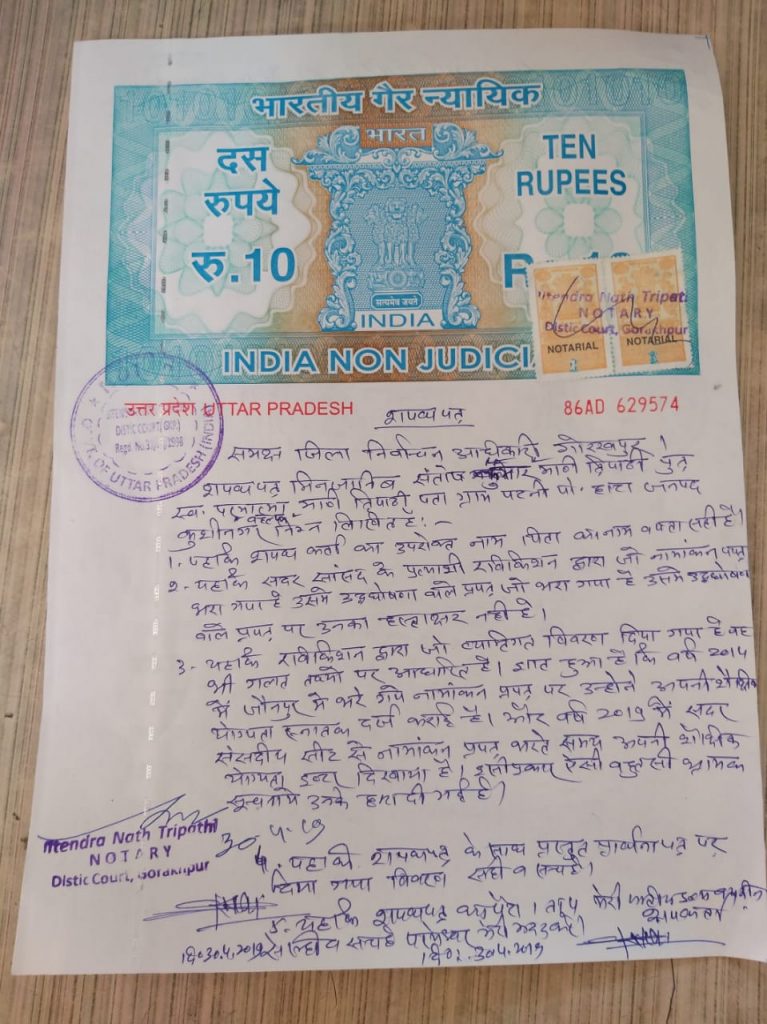 भारतीय गैर न्यायिक
भारत
दस
रुपये
रु.10
TEN
RUPEES
सत्यमेव जयते
INDIA
INDIA NON JUDICI
Jitendra Nath Tripathi
NOTARY
Distic Court, Gorakhpur
NOTARIAL NOTARIAL
उत्तर प्रदेश UTTAR PRADESH
86AD 629574
DISTIC COURT (GKP.)
T. OF UTTAR PRADESH (INDIA)
शपथपत्र
समक्ष जिला निर्वाचन अधिकारी गोरखपुर।
शपथपत्र मिनजानिब संतोष कुमार मणी त्रिपाठी पुत्र
स्व. परमात्मा मणी त्रिपाठी पता ग्राम पटनी पो. हाटा जनपद
कुशीनगर निम्न लिखित है:-
1. यहकि शपथ कर्ता का उपरोक्त नाम पिता का नाम व पता सही है।
2. यहकि सदर सांसद के प्रत्याशी रविकिशन द्वारा जो नामांकन प्रपत्र
भरा गया है उसमे उद्घोषणा वाले प्रपत्र जो भरा गया है उसमे उद्घोषणा
वाले प्रपत्र पर उनका हस्ताक्षर नही है।
3. यहकि रविकिशन द्वारा जो व्यक्तिगत विवरण दिया गया है वह
भी गलत तथ्यो पर आधारित है। ज्ञात हुआ है कि वर्ष 2014
में जौनपुर मे भरे गये नामांकन प्रपत्र पर उन्होने अपनी शैक्षिक
योग्यता स्नातक दर्ज कराई है। और वर्ष 2019 में सदर
संसदीय सीट से नामांकन प्रपत्र भरते समय अपनी शैक्षिक
योग्यता इन्टर दिखाया है। इसीप्रकार ऐसी बहुत सी भ्रामक
सूचनाये उनके द्वारा दी गई है।
Jitendra Nath Tripathi
NOTARY
Distic Court, Gorakhpur
30.4.19
4. यहकि शपथपत्र के साथ प्रस्तुत प्रार्थनापत्र पर
दिया गया विवरण सही व सत्य है।
5. यहकि शपथपत्र मेरी
शपथकर्ता
दि० 30.4.2019 सत्य है परमेश्वर मेरी मदद करे।
दि०: 30.4.2019